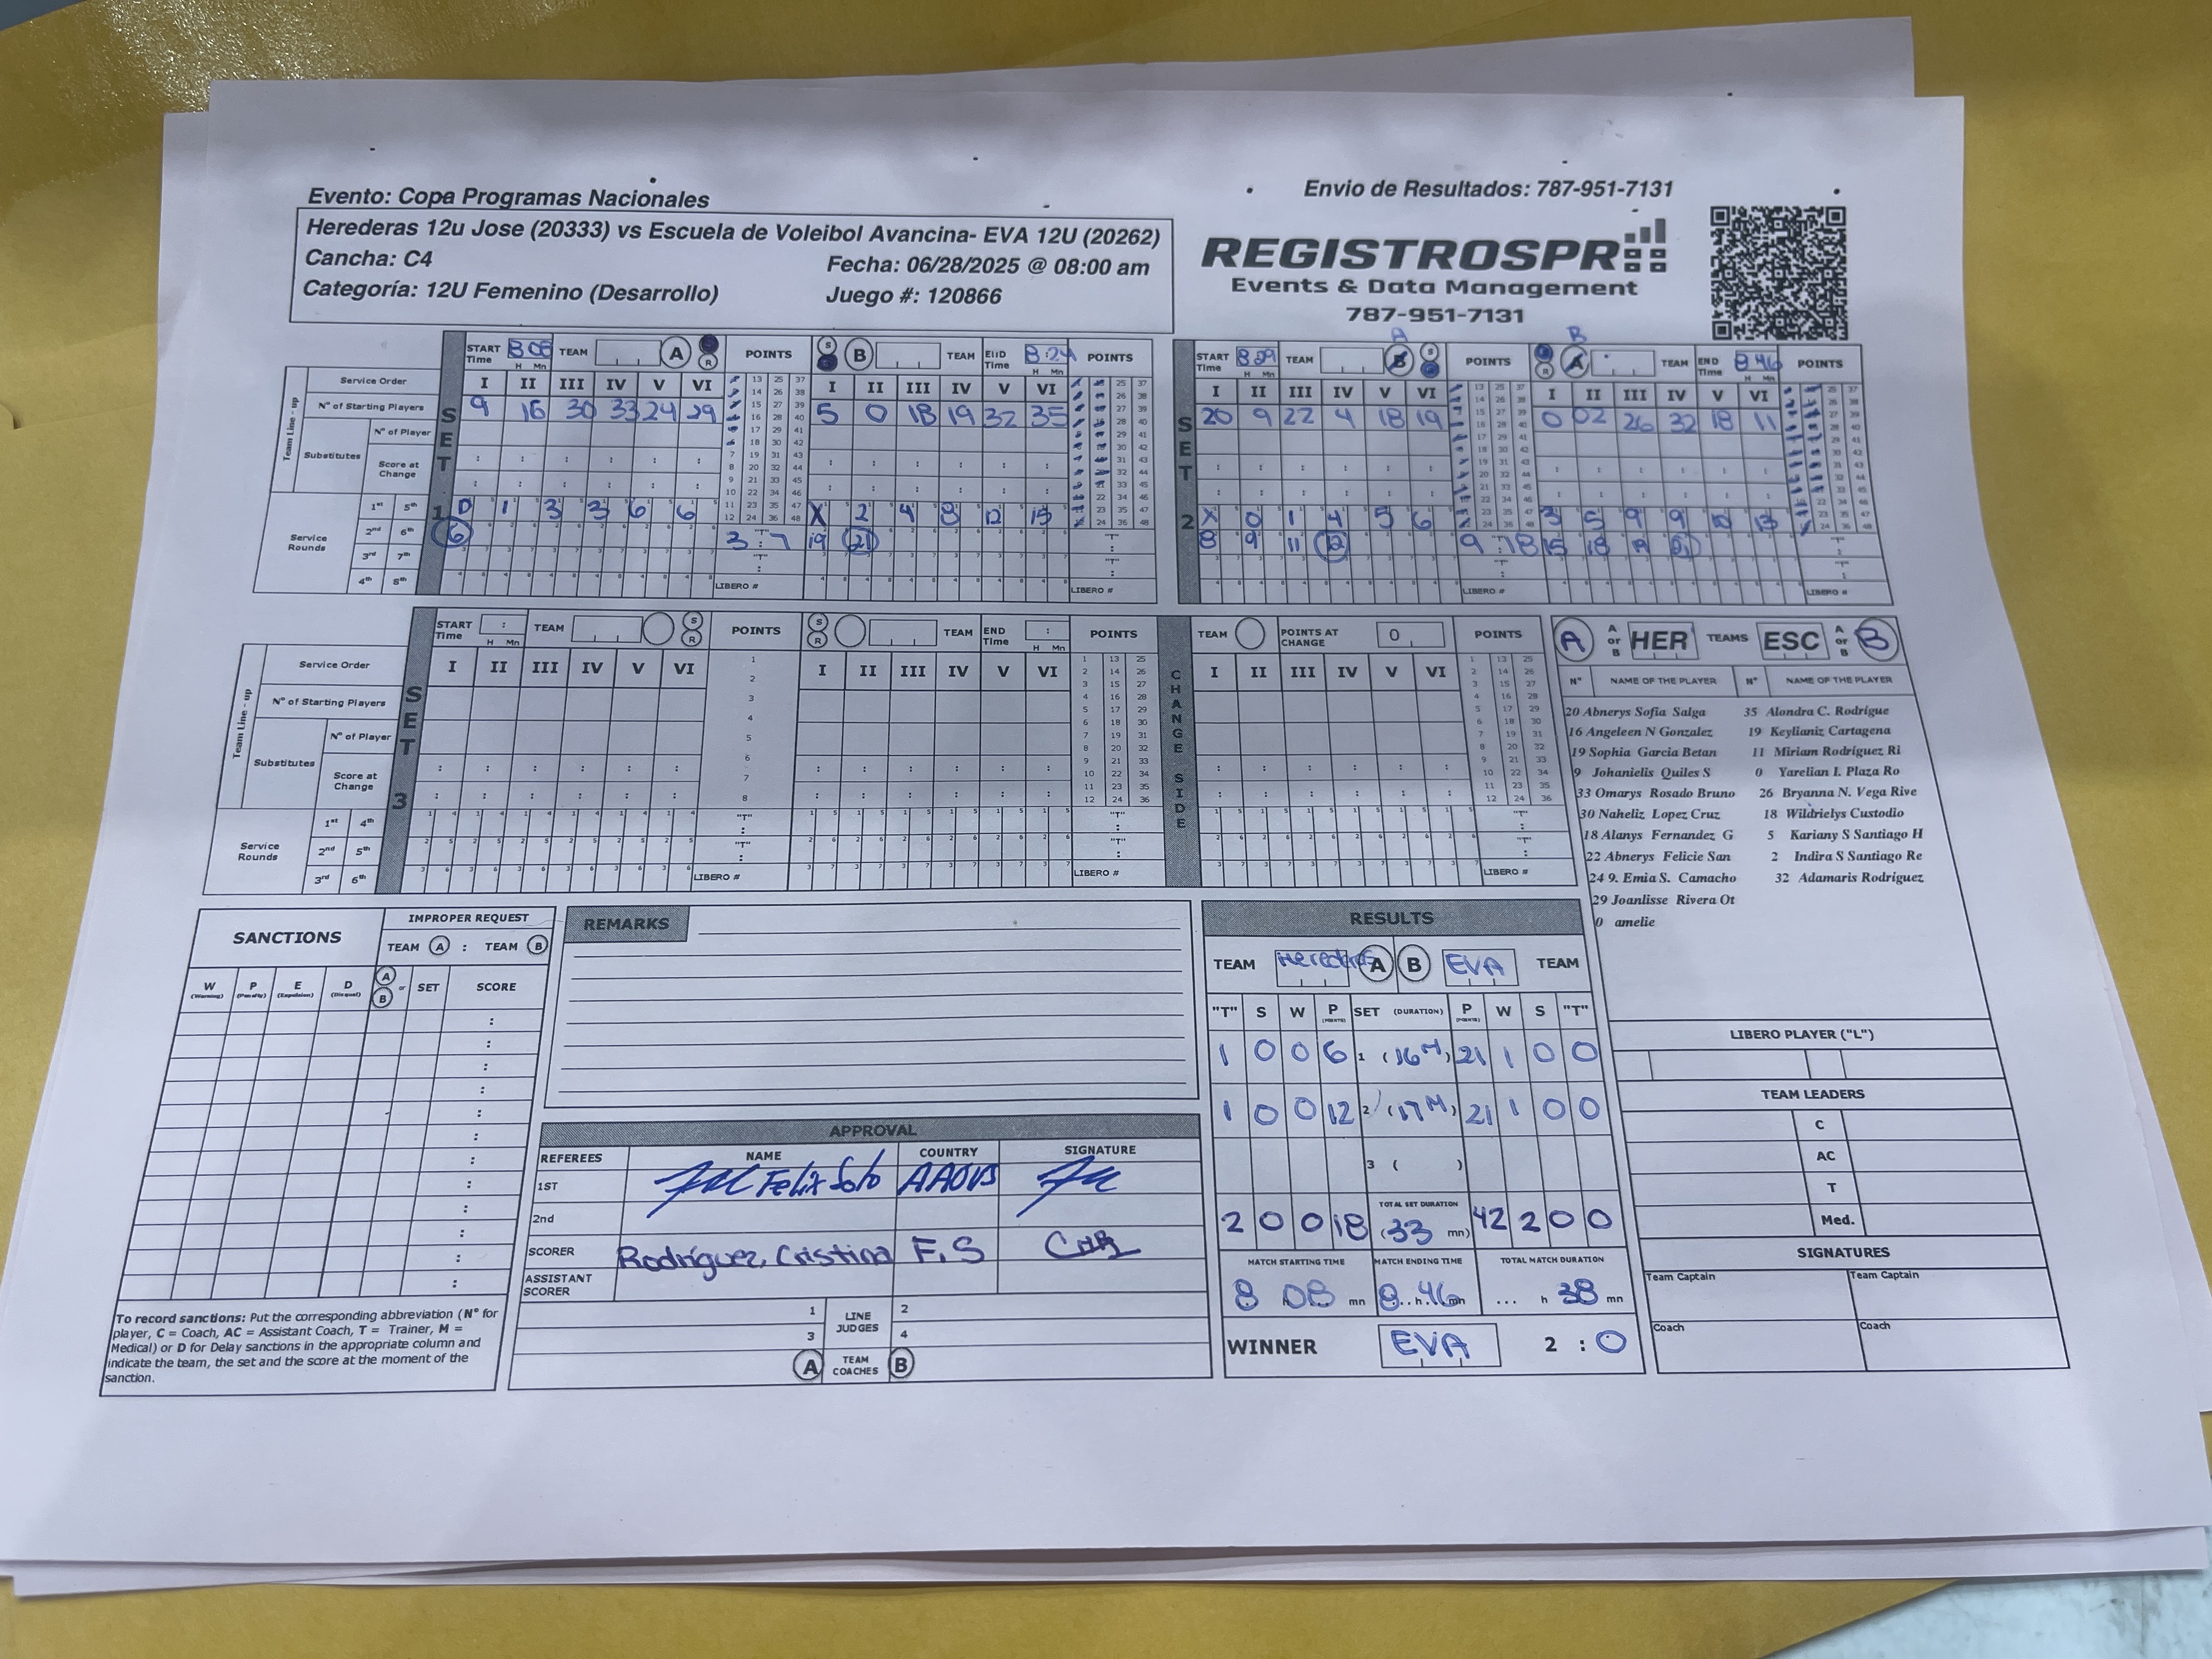 Evento: Copa Programas Nacionales
Envio de Resultados: 787-951-7131
Herederas 12u Jose (20333) vs Escuela de Voleibol Avancina- EVA 12U (20262)
Cancha: C4
Fecha: 06/28/2025 @ 08:00 am
Categoría: 12U Femenino (Desarrollo)
Juego #: 120866
REGISTROSPR
Events & Data Management
787-951-7131
START Time H Mn TEAM A S R POINTS S B TEAM END Time 8:24 H Mn POINTS
START Time 8 29 H Mn TEAM B A S R POINTS S R A B TEAM END Time 8 46 H Mn POINTS
Team Line - up
Service Order I II III IV V VI I II III IV V VI I II III IV V VI I II III IV V VI
N° of Starting Players 9 16 30 33 24 29 5 0 18 19 32 35 20 9 22 4 18 19 0 02 26 32 18 11
Substitutes
N° of Player
Score at Change
SET 1
SET 2
Service Rounds
1st 5th 1 3 3 6 6 X 2 4 8 12 15 X 0 1 4 5 6 3 5 9 9 10 13
2nd 6th 6 "T" 3 : 7 19 21 "T" 8 9 11 12 9 : 18 15 18 21 "T"
3rd 7th "T"
4th 8th LIBERO # LIBERO # LIBERO # LIBERO #
START Time : H Mn TEAM S R POINTS S R TEAM END Time : H Mn POINTS
TEAM POINTS AT CHANGE 0 POINTS
Team Line - up
Service Order I II III IV V VI I II III IV V VI I II III IV V VI
N° of Starting Players
Substitutes
N° of Player
Score at Change
SET 3
CHANGE SIDE
Service Rounds
1st 4th "T"
2nd 5th "T"
3rd 6th LIBERO # LIBERO # LIBERO #
A A or B HER TEAMS ESC A or B B
N° NAME OF THE PLAYER N° NAME OF THE PLAYER
20 Abnerys Sofia Salga 35 Alondra C. Rodrigue
16 Angeleen N Gonzalez 19 Keylianiz Cartagena
19 Sophia Garcia Betan 11 Miriam Rodríguez Ri
9 Johanielis Quiles S 0 Yarelian I. Plaza Ro
33 Omarys Rosado Bruno 26 Bryanna N. Vega Rive
30 Naheliz Lopez Cruz 18 Wildrielys Custodio
18 Alanys Fernandez G 5 Kariany S Santiago H
22 Abnerys Felicie San 2 Indira S Santiago Re
24 9. Emia S. Camacho 32 Adamaris Rodriguez
29 Joanlisse Rivera Ot
0 amelie
LIBERO PLAYER ("L")
TEAM LEADERS
C
AC
T
Med.
SIGNATURES
Team Captain Team Captain
Coach Coach
SANCTIONS
IMPROPER REQUEST
TEAM A : TEAM B
W (Warning) P (Penalty) E (Expulsion) D (Disqual) A or B SET SCORE
To record sanctions: Put the corresponding abbreviation (N° for
player, C = Coach, AC = Assistant Coach, T = Trainer, M =
Medical) or D for Delay sanctions in the appropriate column and
indicate the team, the set and the score at the moment of the
sanction.
REMARKS
APPROVAL
REFEREES NAME COUNTRY SIGNATURE
1ST Felix Soto
2nd
SCORER Rodríguez, Cristina F.S
ASSISTANT SCORER
1 LINE JUDGES 2
3 4
A TEAM COACHES B
RESULTS
TEAM Herederas A B EVA TEAM
"T" S W P (POINTS) SET (DURATION) P (POINTS) W S "T"
1 0 0 6 1 (16 M) 21 1 0 0
1 0 0 12 2 (17 M) 21 1 0 0
3 ( )
TOTAL SET DURATION
2 0 0 18 (33 mn) 42 2 0 0
MATCH STARTING TIME MATCH ENDING TIME TOTAL MATCH DURATION
8 h 08 mn 8 h 46 mn ... h 38 mn
WINNER EVA 2 : 0